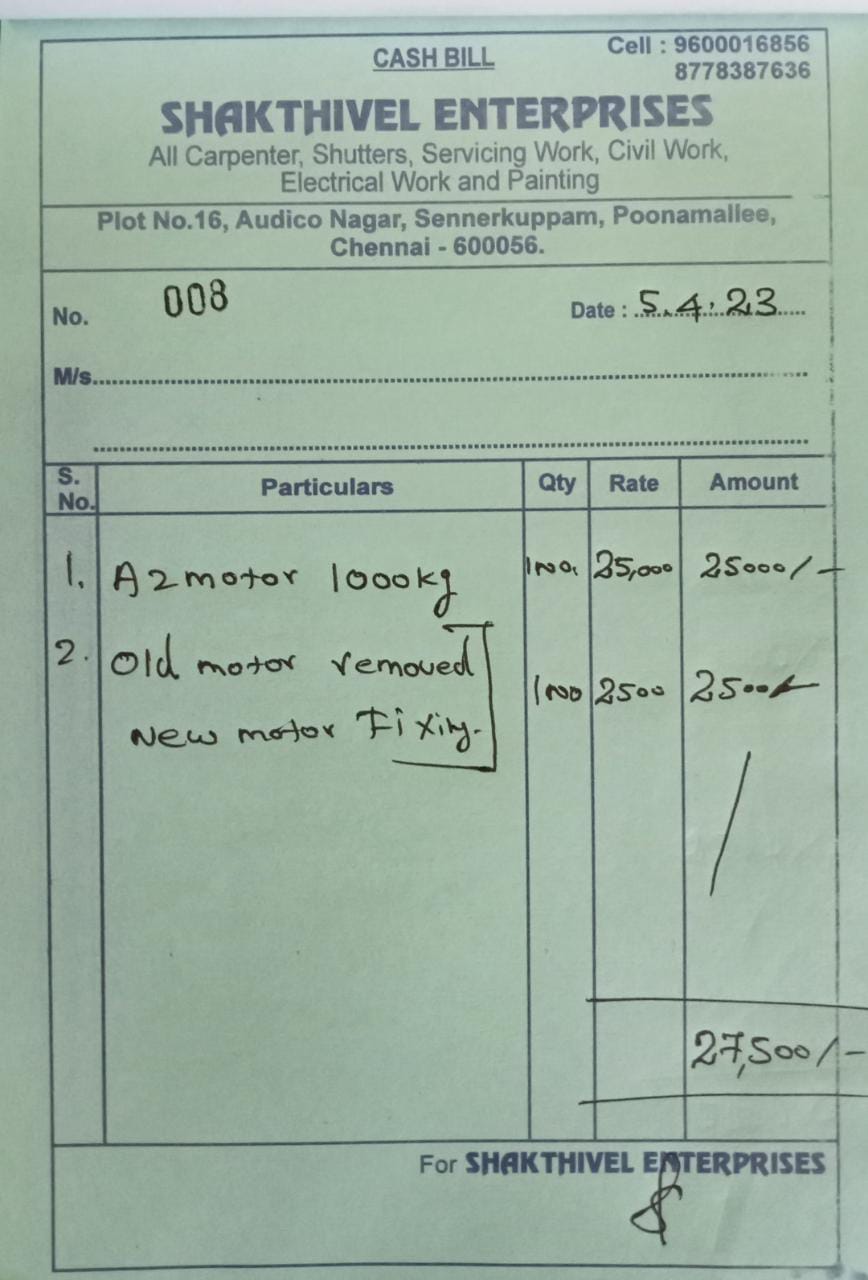 CASH BILL
Cell : 9600016856
8778387636
SHAKTHIVEL ENTERPRISES
All Carpenter, Shutters, Servicing Work, Civil Work,
Electrical Work and Painting
Plot No.16, Audico Nagar, Sennerkuppam, Poonamallee,
Chennai - 600056.
No. 008 Date : 5.4.23
M/s.
S. No. Particulars Qty Rate Amount
1. A2 motor 1000kg 1 no. 25,000 25000/-
2. Old motor removed
New motor Fixing. 1 no 2500 2500/-
27,500/-
For SHAKTHIVEL ENTERPRISES